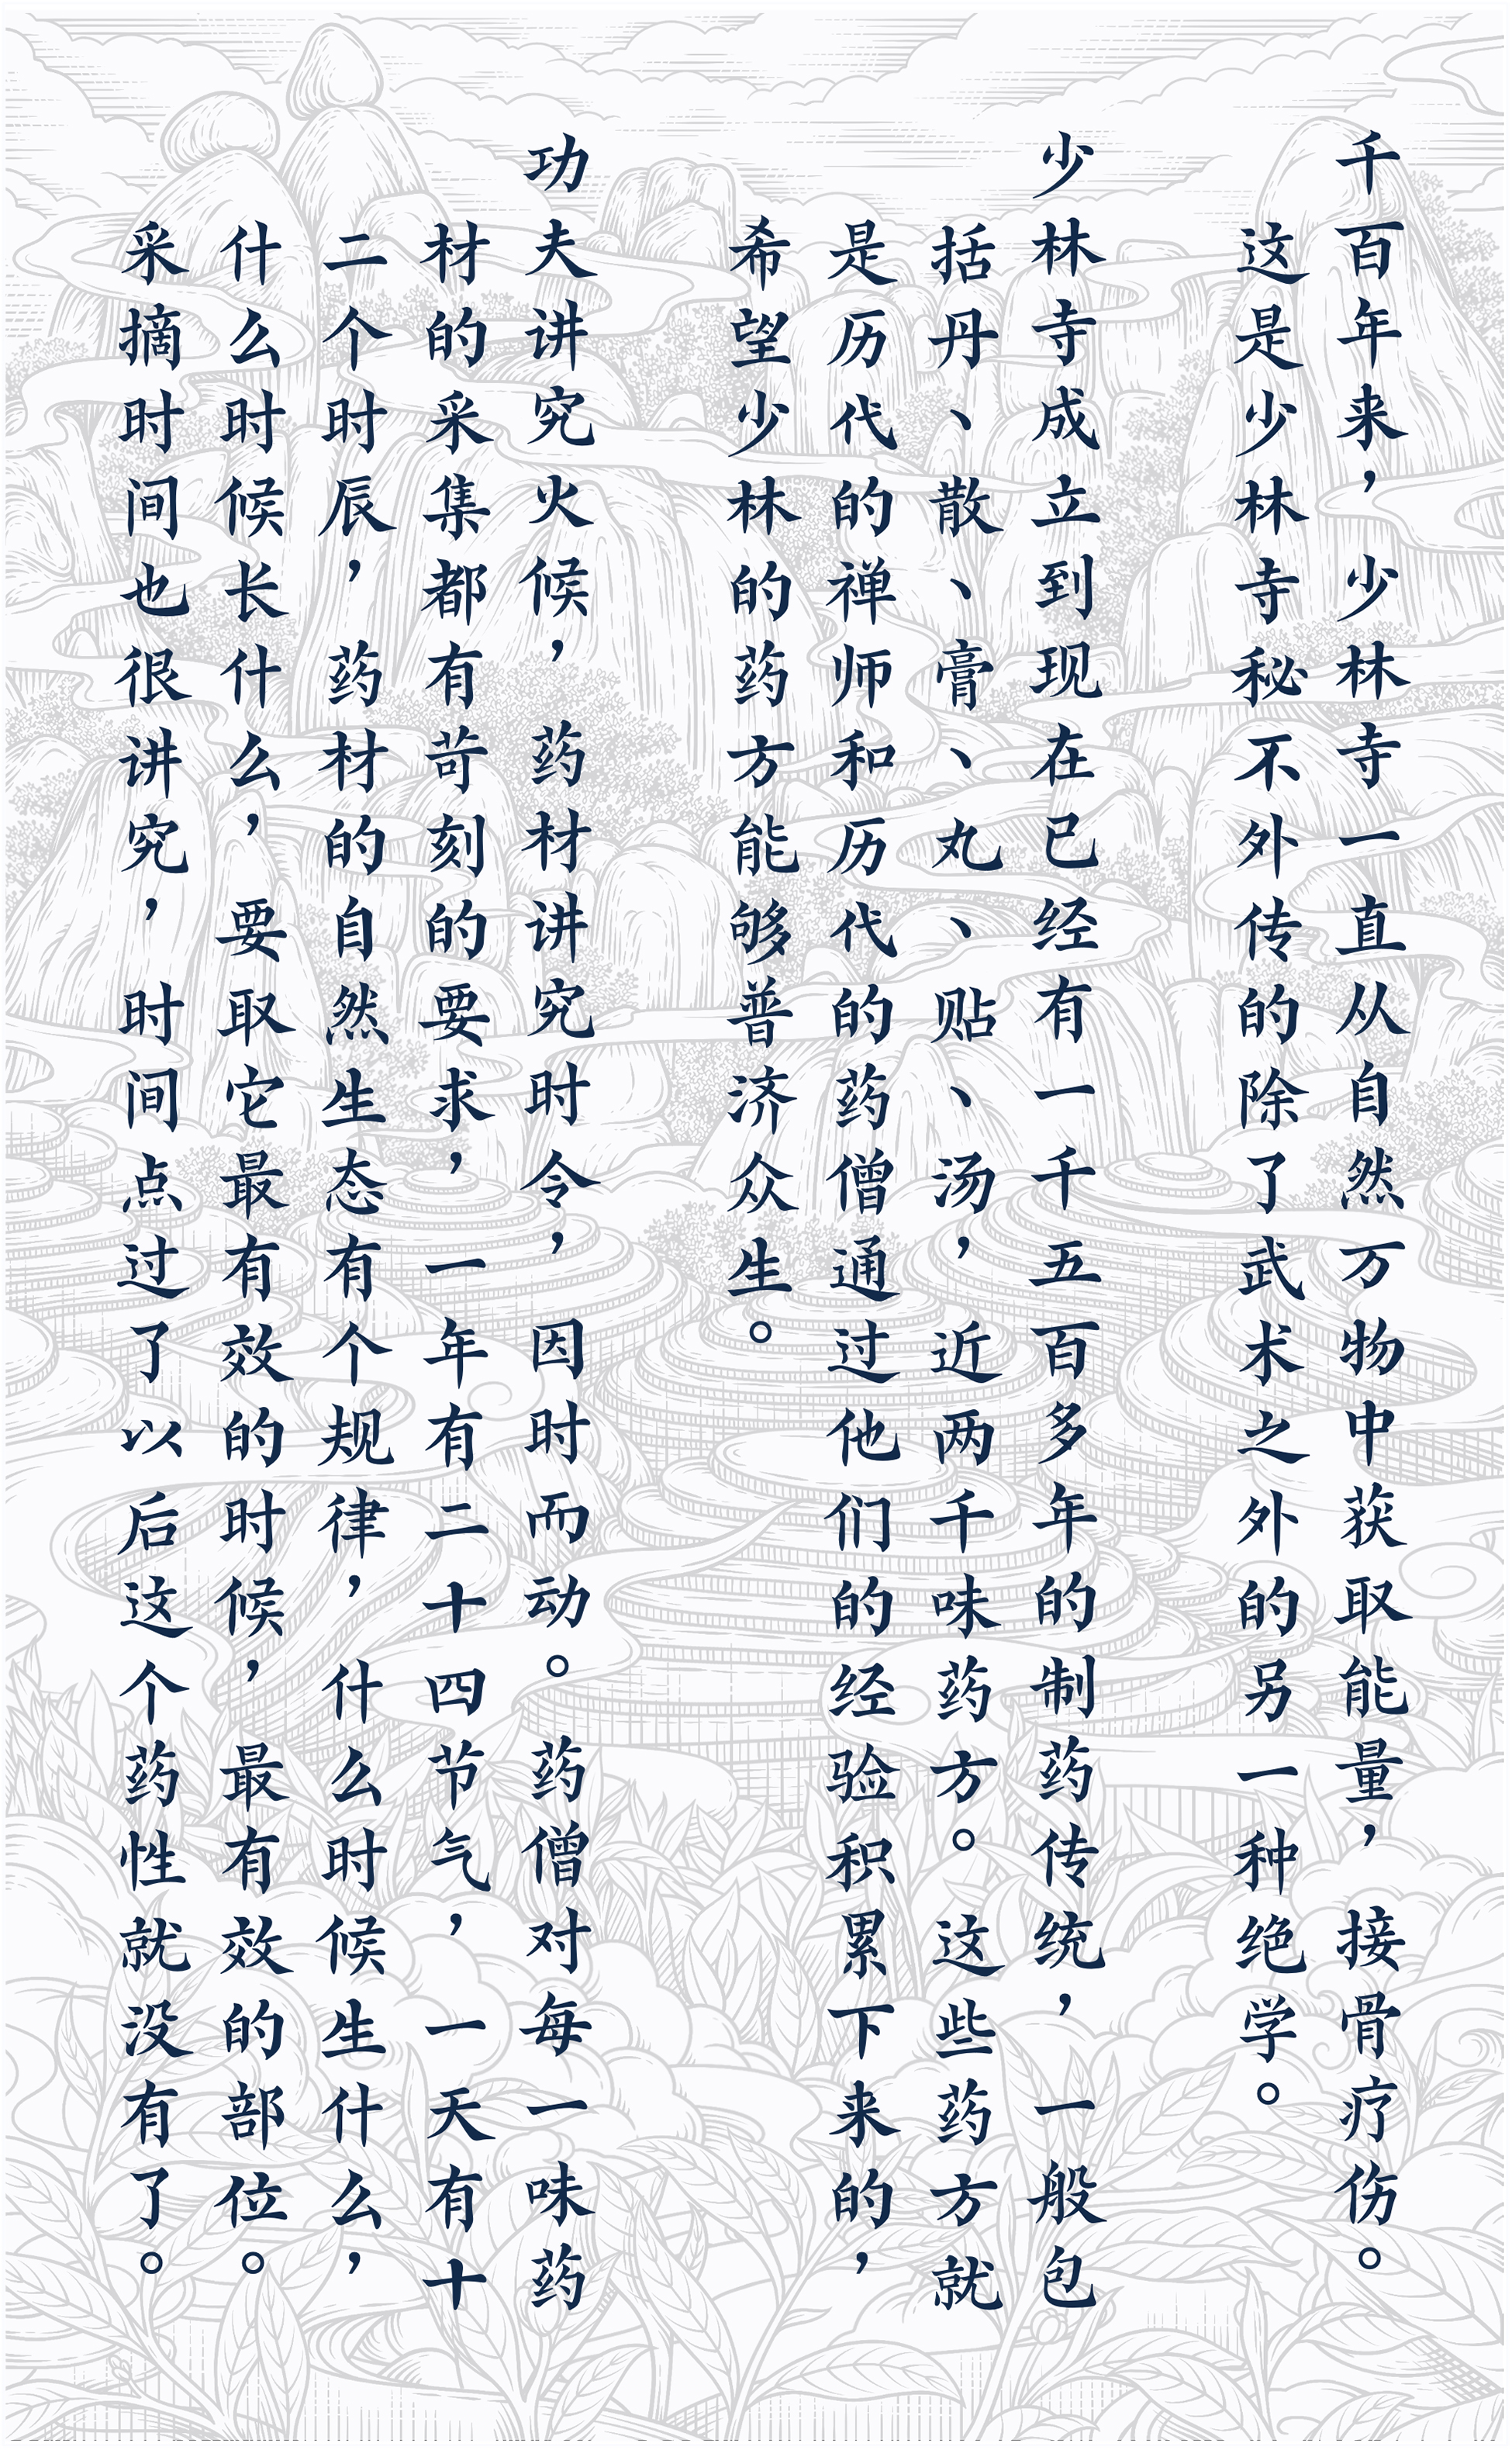 千百年来，少林寺一直从自然万物中获取能量，接骨疗伤。
这是少林寺秘不外传的除了武术之外的另一种绝学。
少林寺成立到现在已经有一千五百多年的制药传统，一般包
括丹、散、膏、丸、贴、汤，近两千味药方。这些药方就
是历代的禅师和历代的药僧通过他们的经验积累下来的，
希望少林的药方能够普济众生。
功夫讲究火候，药材讲究时令，因时而动。药僧对每一味药
材的采集都有苛刻的要求，一年有二十四节气，一天有十
二个时辰，药材的自然生态有个规律，什么时候生什么，
什么时候长什么，要取它最有效的时候，最有效的部位。
采摘时间也很讲究，时间点过了以后这个药性就没有了。